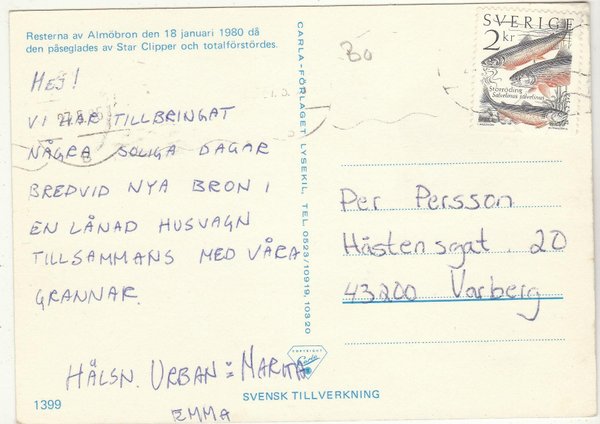 Resterna av Almöbron den 18 januari 1980 då
den påseglades av Star Clipper och totalförstördes.
HEJ!
VI HAR TILLBRINGAT
NÅGRA SOLIGA DAGAR
BREDVID NYA BRON I
EN LÅNAD HUSVAGN
TILLSAMMANS MED VÅRA
GRANNAR.
HÄLSN. URBAN : MARITA
EMMA
1399
SVENSK TILLVERKNING
CARLA-FÖRLAGET LYSEKIL, TEL 0523/10919, 10320
COPYRIGHT
Carla
Bo
SVERIGE
2 kr
Storröding
Salvelinus salvelinus
Per Persson
Håstensgat. 20
43200 Varberg